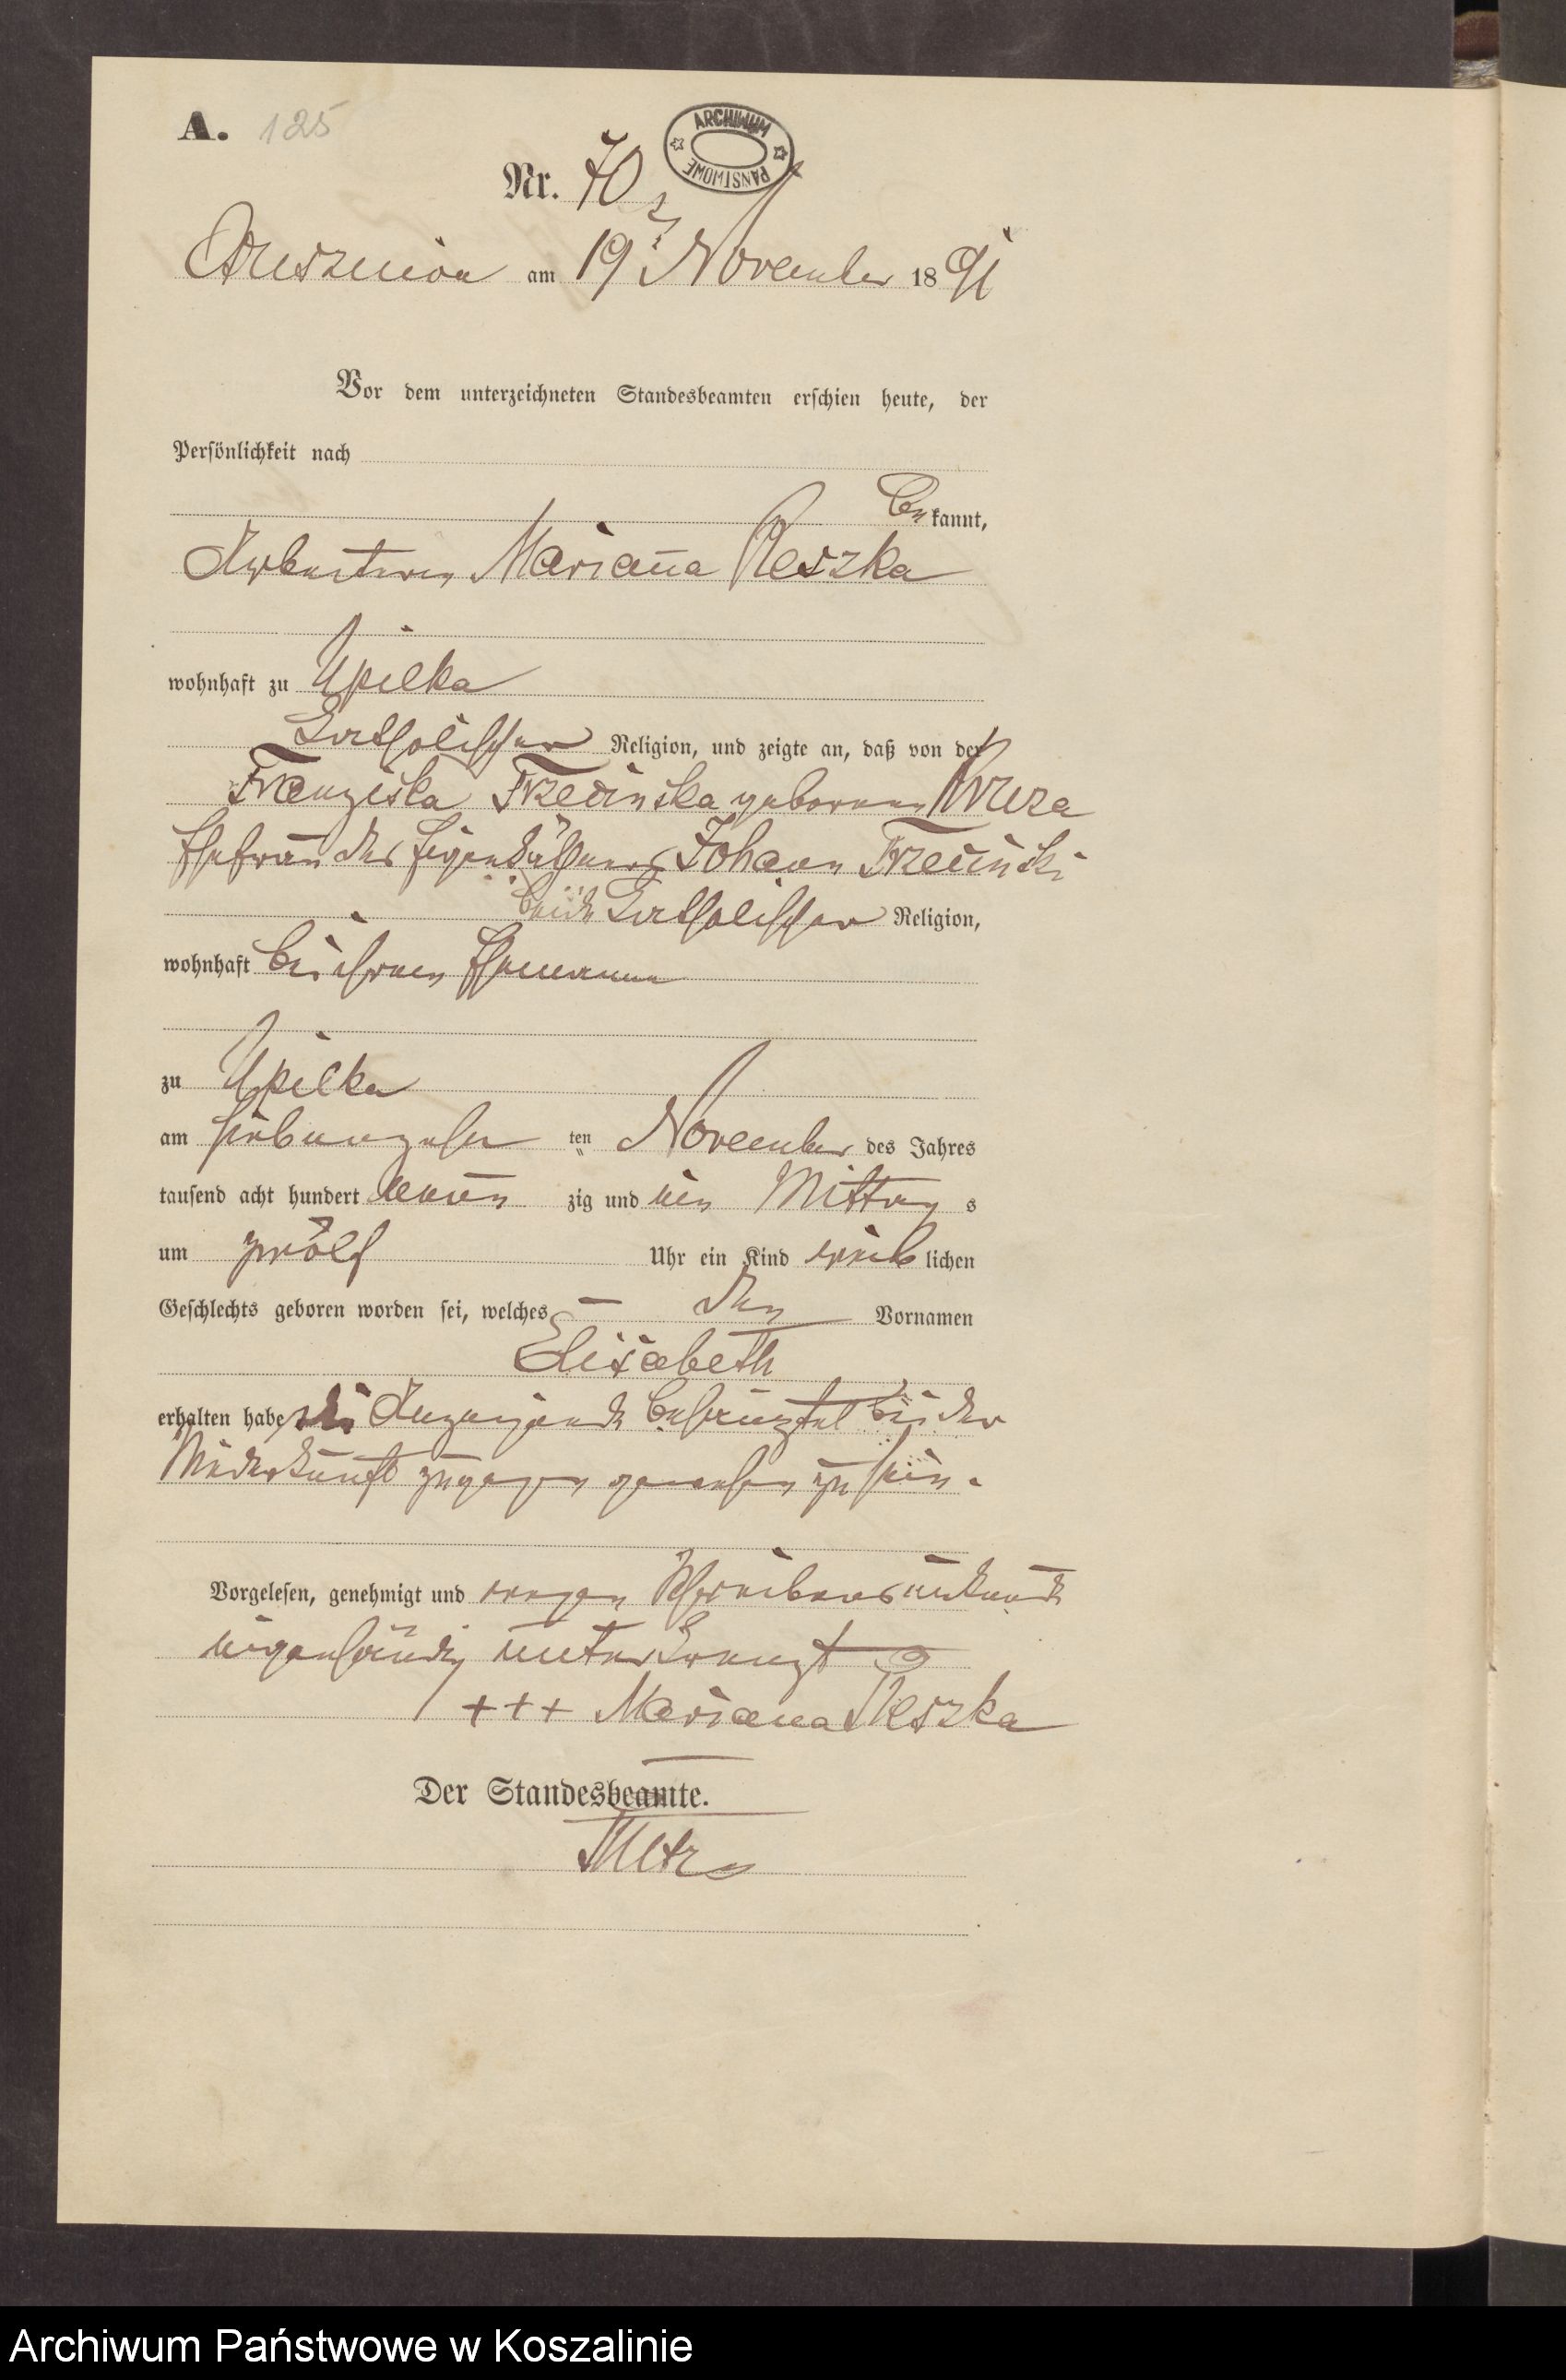 A. 125
ARCHIWUM PAŃSTWOWE
Nr. 70
am 19 November 1891
Vor dem unterzeichneten Standesbeamten erschien heute, der
Persönlichkeit nach
be kannt,
Mariana Reszka
wohnhaft zu Upilka
katholischer Religion, und zeigte an, daß von der
Franziska Trzecinska geborenen Wruza
Ehefrau des Eigenkäthners Johann Trzecinski
beide katholischer Religion,
wohnhaft bei ihrem Ehemanne
zu Upilka
am siebenzehn ten November des Jahres
tausend acht hundert neun zig und ein Mittag s
um zwölf Uhr ein Kind weib lichen
Geschlechts geboren worden sei, welches den Vornamen
Elisabeth
erhalten habe, die Anzeigende bei der
Niederkunft zugegen gewesen zu sein.
Vorgelesen, genehmigt und wegen Schreibensunkunde
eigenhändig unterkreuzt
+++ Mariana Reszka
Der Standesbeamte.
Archiwum Państwowe w Koszalinie